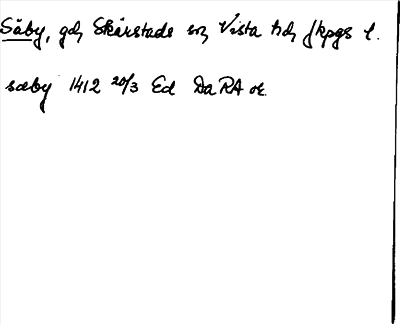 Säby, gd, Skärstads sn, Vista hd, Jkpgs l.
sæby 1412 20/3 Ed DaRA or.